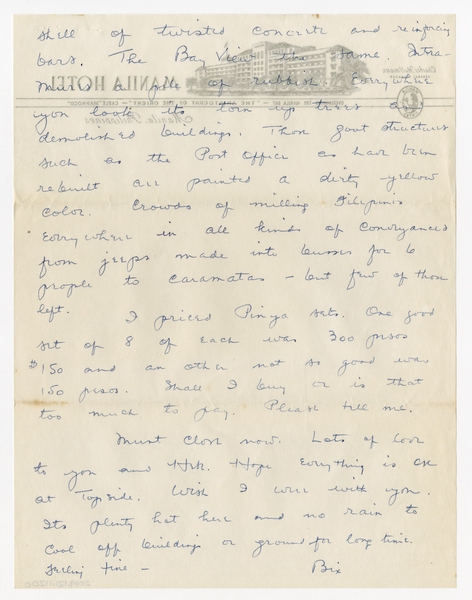 shell of twisted concrete and reinforcing
bars. The Bay View the same. Intra-
muros a pile of rubbish. Everywhere
you look its torn up trees or
demolished buildings. Those govt structures
such as the Post Office as have been
rebuilt are painted a dirty yellow
color. Crowds of milling Filipinis
everywhere in all kinds of conveyances
from jeeps made into busses for 6
people to caramatas – but few of those
left. I priced Pinya sets. One good
set of 8 of each was 300 pisos
$150 and an other not so good was
150 pesos. Shall I buy or is that
too much to pay. Please tell me.
Must close now. Lots of love
to you and Hrk. Hope everything is ok
at Topside. Wish I were with you.
Its plenty hot here and no rain to
cool off buildings or ground for long time.
Feeling fine – Bix
MANILA HOTEL